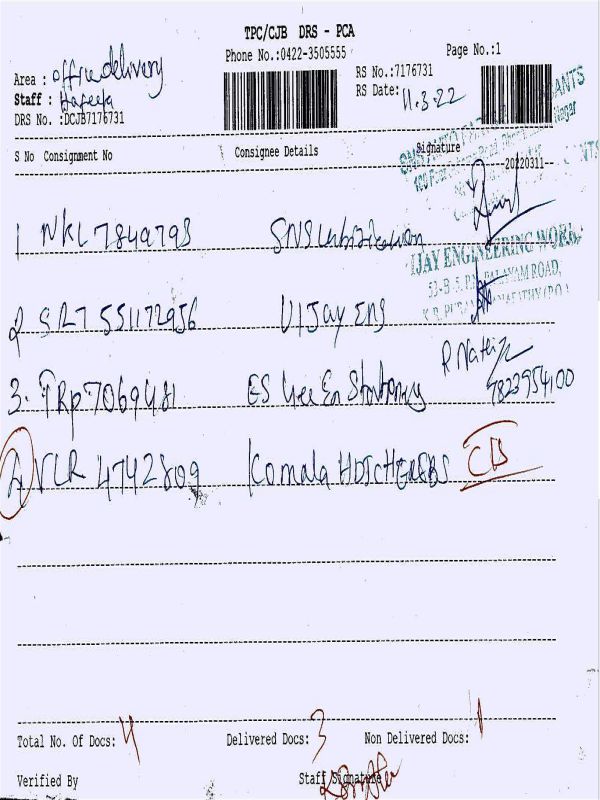 TPC/CJB DRS - PCA
Phone No.:0422-3505555 Page No.:1
Area : office delivery RS No.:7176731
Staff : Hafeefa RS Date: 11.3.22
DRS No. :DCJB7176731
S No Consignment No Consignee Details Signature
20220311
1 NKL 7849793 SNS Lubrication
IJAY ENGINEERING WORK
53-B-5, P.N. PALAYAM ROAD,
2 SRT 551172956 Vijay Eng
3. TRP 7069481 ES Stationary R
4 VLR 4742809 Komala CB
Total No. Of Docs: 4 Delivered Docs: 3 Non Delivered Docs: 1
Verified By Staff Signature